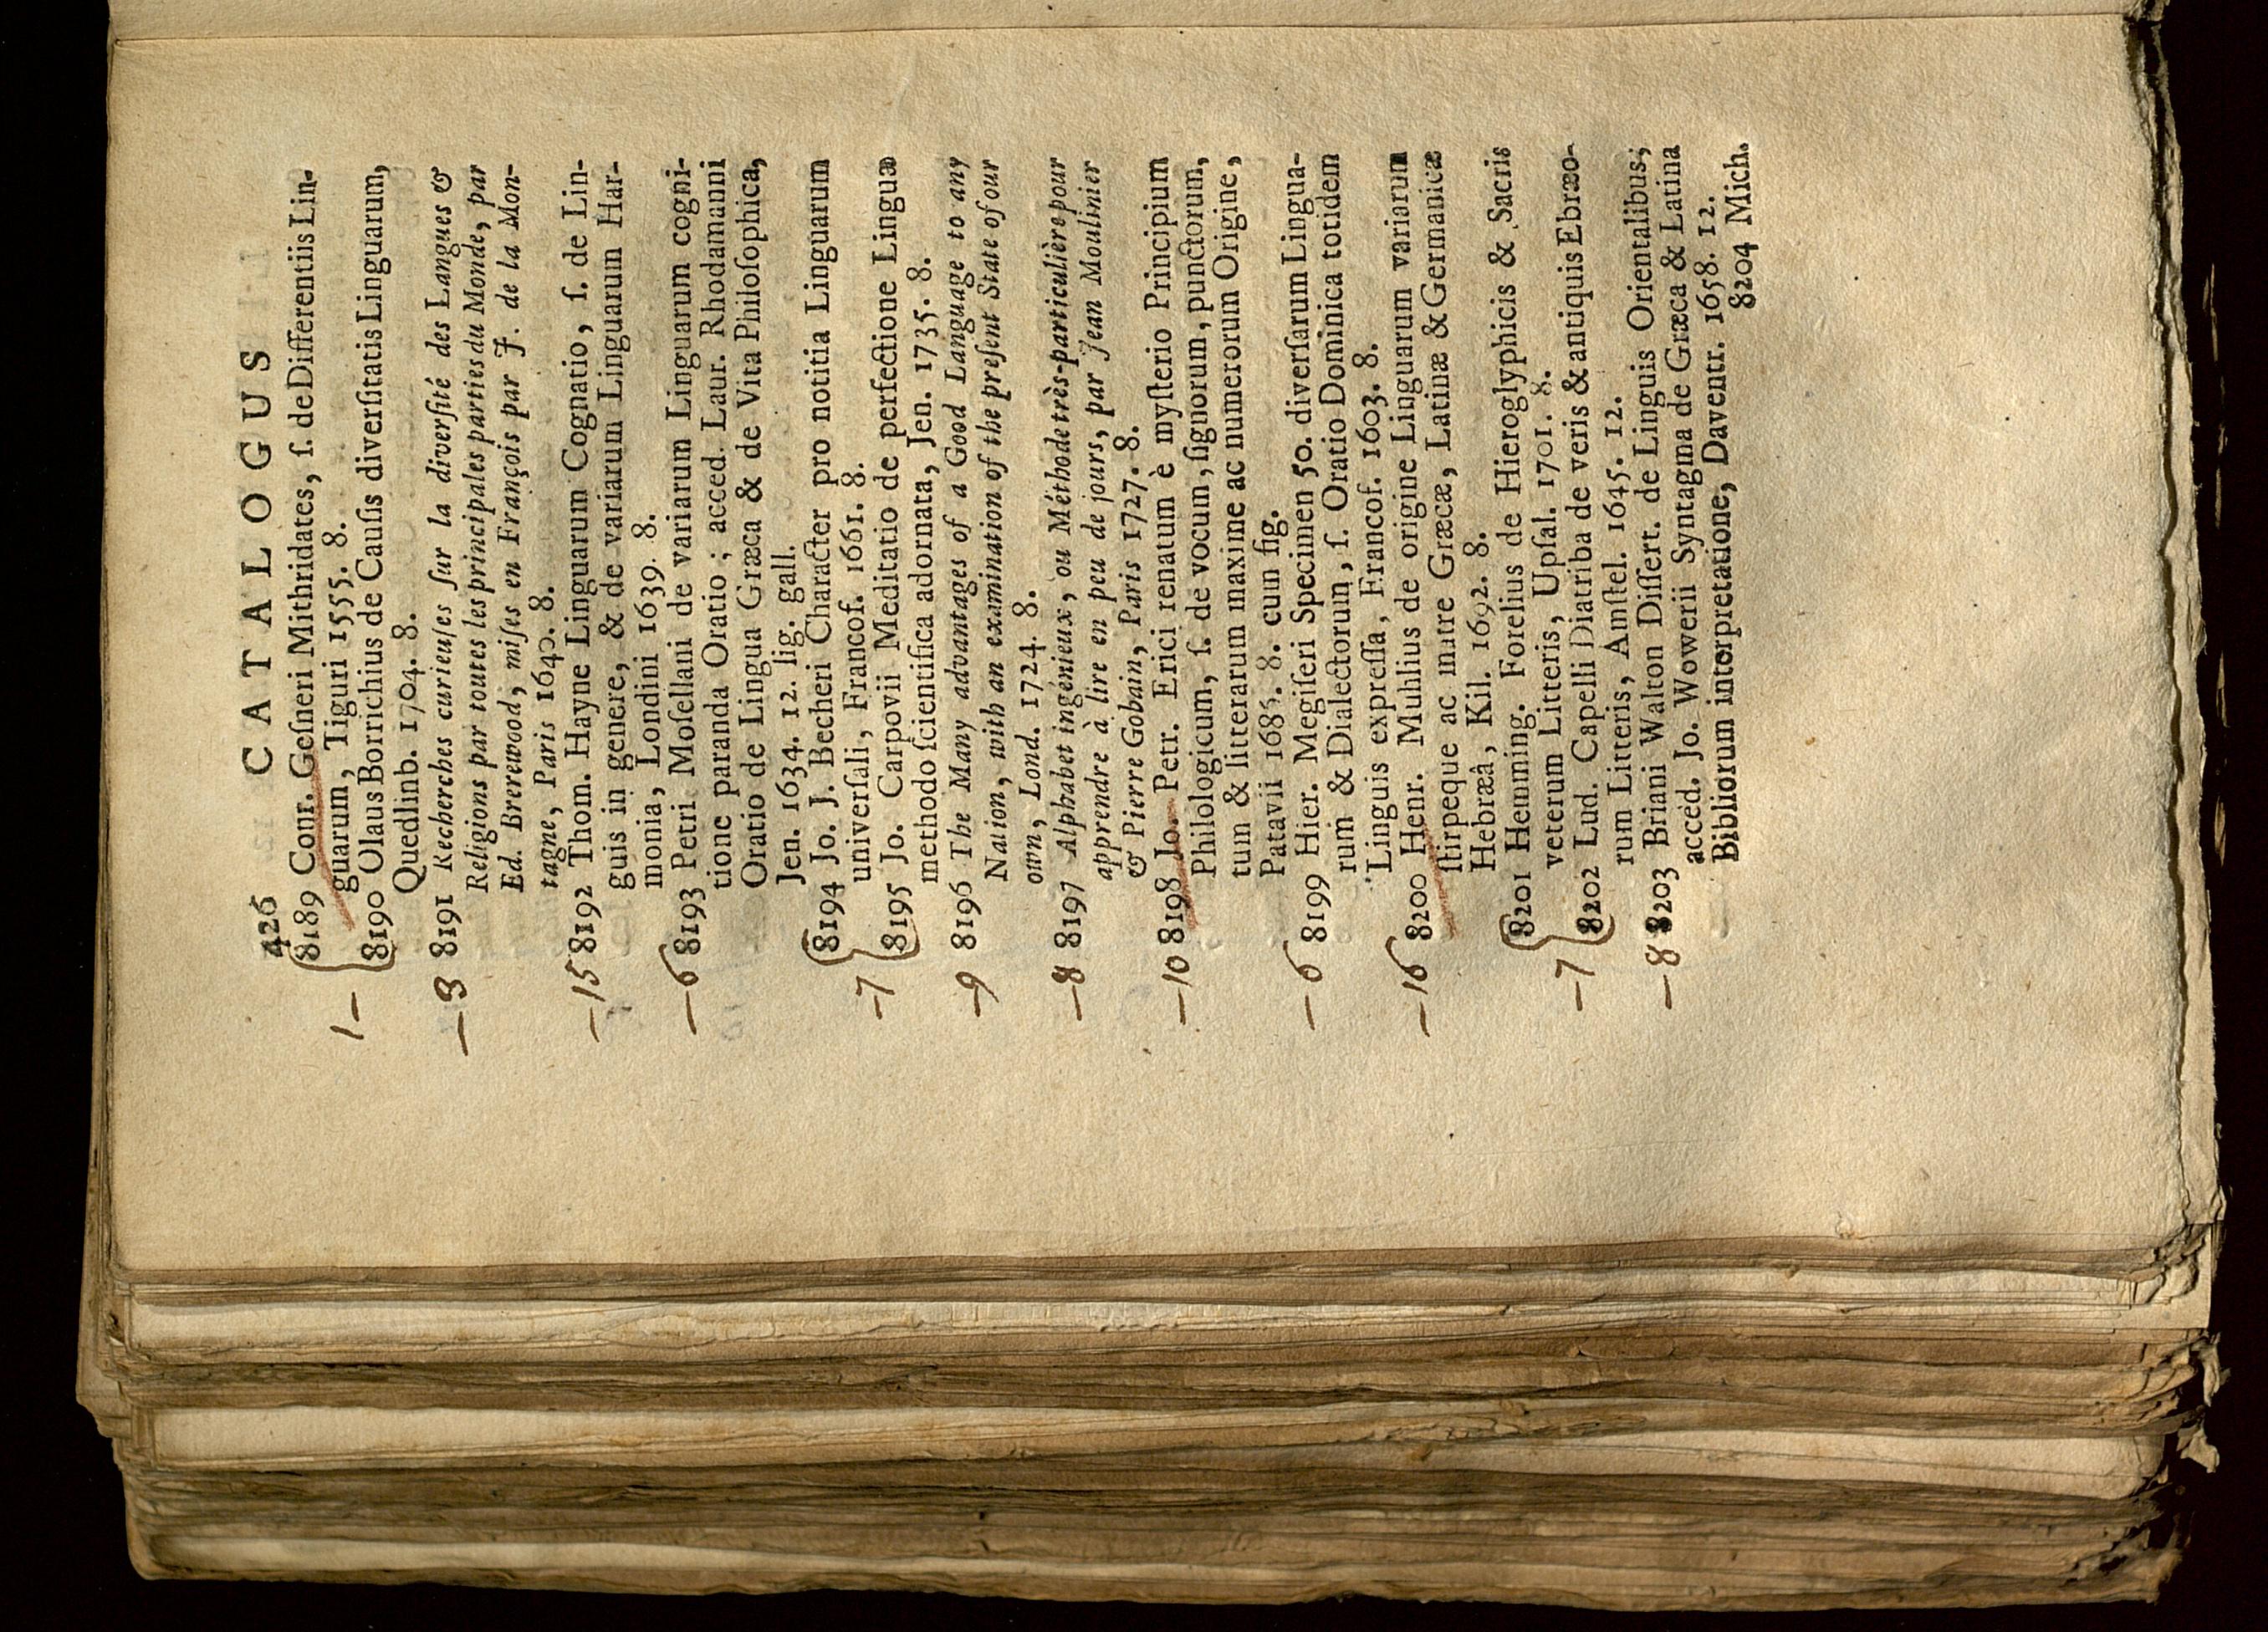 426 CATALOGUS
8189 Conr. Geſneri Mithridates, ſ. de Differentiis Lin-
guarum, Tiguri 1555. 8.
1—
8190 Olaus Borrichius de Cauſis diverſitatis Linguarum,
Quedlinb. 1704. 8.
—3 8191 Recherches curieuſes ſur la diverſité des Langues &
Religions par toutes les principales parties du Monde, par
Ed. Brerewood, miſes en François par J. de la Mon-
tagne, Paris 1640. 8.
—15 8192 Thom. Hayne Linguarum Cognatio, ſ. de Lin-
guis in genere, & de variarum Linguarum Har-
monia, Londini 1639. 8.
—6 8193 Petri Moſellani de variarum Linguarum cogni-
tione paranda Oratio; acced. Laur. Rhodamanni
Oratio de Lingua Græca & de Vita Philoſophica,
Jen. 1634. 12. lig. gall.
8194 Jo. J. Becheri Character pro notitia Linguarum
univerſali, Francof. 1661. 8.
—7
8195 Jo. Carpovii Meditatio de perfectione Linguæ
methodo ſcientifica adornata, Jen. 1735. 8.
—9 8196 The Many advantages of a Good Language to any
Nation, with an examination of the preſent State of our
own, Lond. 1724. 8.
—8 8197 Alphabet ingénieux, ou Méthode très-particulière pour
apprendre à lire en peu de jours, par Jean Moulinier
& Pierre Gobain, Paris 1727. 8.
—10 8198 Jo. Petr. Erici renatum è myſterio Principium
Philologicum, ſ. de vocum, ſignorum, punctorum,
tum & litterarum maxime ac numerorum Origine,
Patavii 1686. 8. cun fig.
—6 8199 Hier. Megiſeri Specimen 50. diverſarum Lingua-
rum & Dialectorum, ſ. Oratio Dominica totidem
Linguis expreſſa, Francof. 1603. 8.
—16 8200 Henr. Muhlius de origine Linguarum variarum
ſtirpeque ac matre Græcæ, Latinæ & Germanicæ
Hebræâ, Kil. 1692. 8.
8201 Hemming. Forelius de Hieroglyphicis & Sacris
veterum Litteris, Upſal. 1701. 8.
—7
8202 Lud. Capelli Diatriba de veris & antiquis Ebræo-
rum Litteris, Amſtel. 1645. 12.
—8 8203 Briani Walton Diſſert. de Linguis Orientalibus;
acced. Jo. Wowerii Syntagma de Græca & Latina
Bibliorum interpretatione, Daventr. 1658. 12.
8204 Mich.